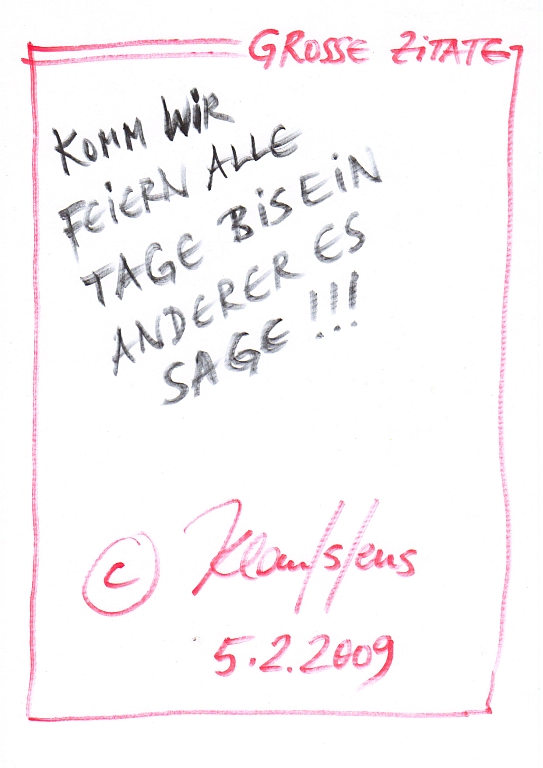 GROSSE ZiTATE
KOMM WiR
FEiERN ALLE
TAGE BiS EiN
ANDERER ES
SAGE !!!
© Klau/s/ens
5.2.2009